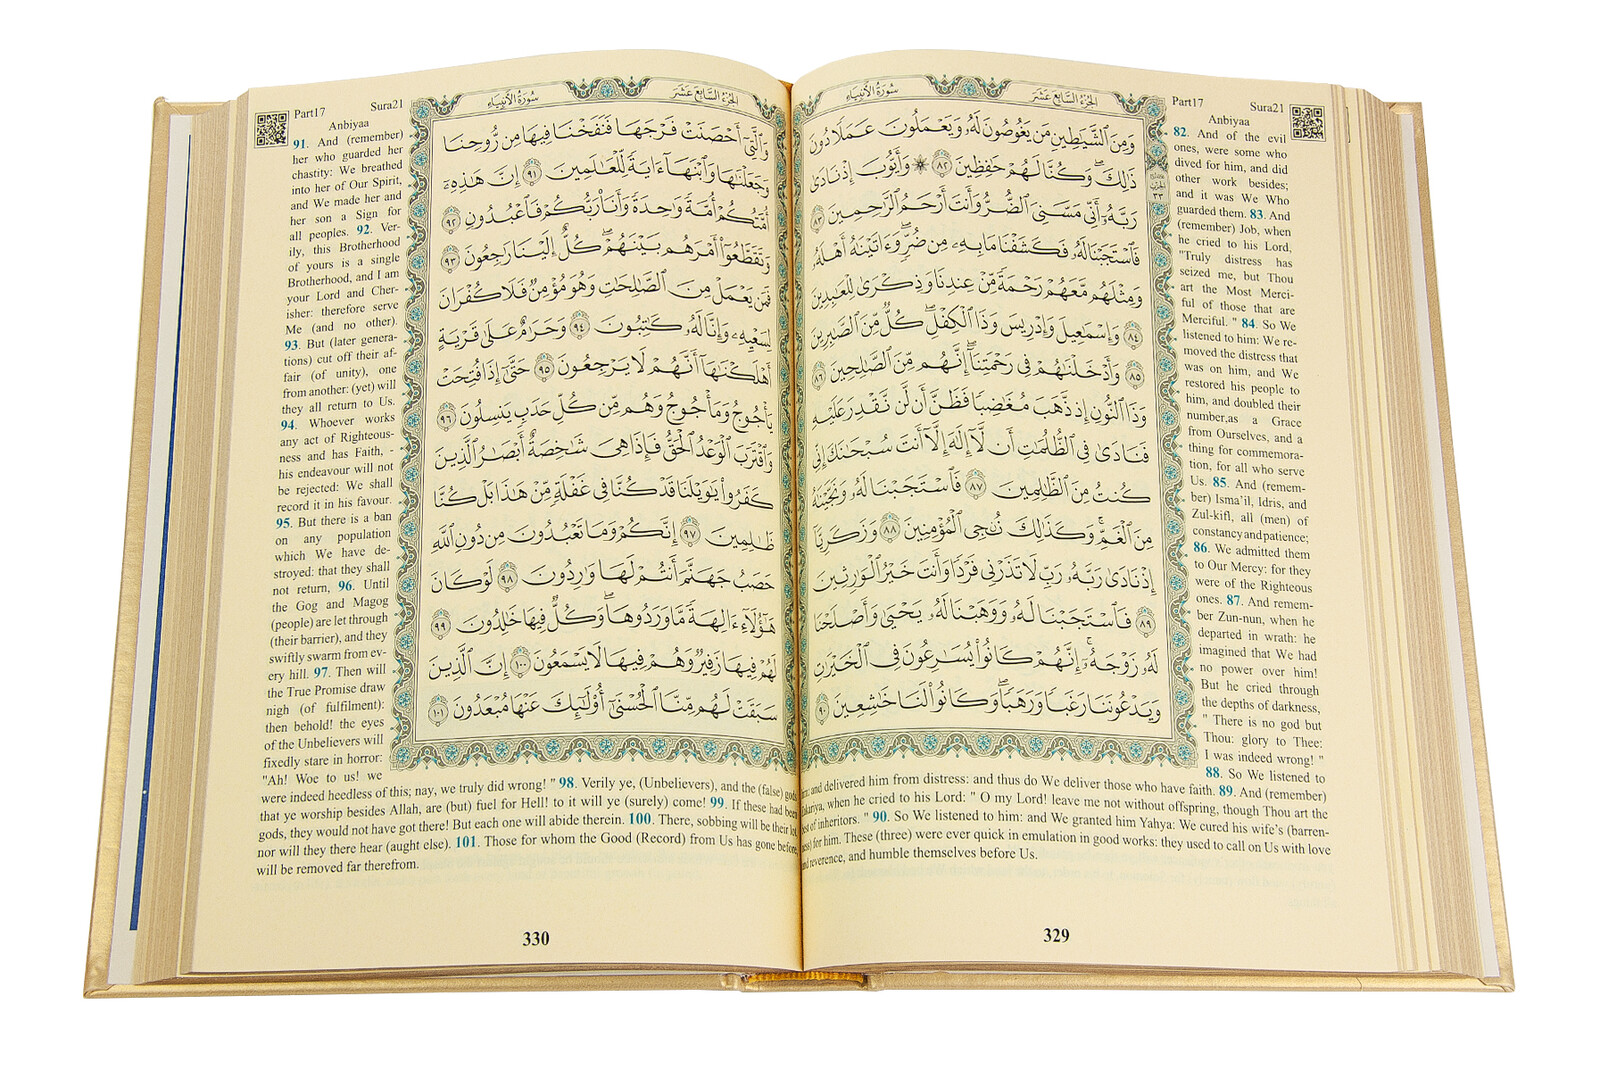 Part17 Sura21
Anbiyaa
سُورَةُ الأَنبِيَاءِ
الجُزْءُ السَّابِعَ عَشَرَ
وَمِنَ الشَّيَاطِينِ مَن يَغُوصُونَ لَهُ وَيَعْمَلُونَ عَمَلًا دُونَ
ذَٰلِكَ ۖ وَكُنَّا لَهُمْ حَافِظِينَ ٨٢ ۞ وَأَيُّوبَ إِذْ نَادَىٰ
رَبَّهُ أَنِّي مَسَّنِيَ الضُّرُّ وَأَنتَ أَرْحَمُ الرَّاحِمِينَ ٨٣
فَاسْتَجَبْنَا لَهُ فَكَشَفْنَا مَا بِهِ مِن ضُرٍّ ۖ وَآتَيْنَاهُ أَهْلَهُ
وَمِثْلَهُم مَّعَهُمْ رَحْمَةً مِّنْ عِندِنَا وَذِكْرَىٰ لِلْعَابِدِينَ
٨٤ وَإِسْمَاعِيلَ وَإِدْرِيسَ وَذَا الْكِفْلِ ۖ كُلٌّ مِّنَ الصَّابِرِينَ
٨٥ وَأَدْخَلْنَاهُمْ فِي رَحْمَتِنَا ۖ إِنَّهُم مِّنَ الصَّالِحِينَ ٨٦
وَذَا النُّونِ إِذ ذَّهَبَ مُغَاضِبًا فَظَنَّ أَن لَّن نَّقْدِرَ عَلَيْهِ
فَنَادَىٰ فِي الظُّلُمَاتِ أَن لَّا إِلَٰهَ إِلَّا أَنتَ سُبْحَانَكَ إِنِّي
كُنتُ مِنَ الظَّالِمِينَ ٨٧ فَاسْتَجَبْنَا لَهُ وَنَجَّيْنَاهُ
مِنَ الْغَمِّ ۚ وَكَذَٰلِكَ نُنجِي الْمُؤْمِنِينَ ٨٨ وَزَكَرِيَّا
إِذْ نَادَىٰ رَبَّهُ رَبِّ لَا تَذَرْنِي فَرْدًا وَأَنتَ خَيْرُ الْوَارِثِينَ
٨٩ فَاسْتَجَبْنَا لَهُ وَوَهَبْنَا لَهُ يَحْيَىٰ وَأَصْلَحْنَا
لَهُ زَوْجَهُ ۚ إِنَّهُمْ كَانُوا يُسَارِعُونَ فِي الْخَيْرَاتِ
وَيَدْعُونَنَا رَغَبًا وَرَهَبًا ۖ وَكَانُوا لَنَا خَاشِعِينَ ٩٠
82. And of the evil
ones, were some who
dived for him, and did
other work besides;
and it was We Who
guarded them. 83. And
(remember) Job, when
he cried to his Lord,
"Truly distress has
seized me, but Thou
art the Most Merci-
ful of those that are
Merciful. " 84. So We
listened to him: We re-
moved the distress that
was on him, and We
restored his people to
him, and doubled their
number,as a Grace
from Ourselves, and a
thing for commemora-
tion, for all who serve
Us. 85. And (remem-
ber) Isma'il, Idris, and
Zul-kifl, all (men) of
constancy and patience;
86. We admitted them
to Our Mercy: for they
were of the Righteous
ones. 87. And remem-
ber Zun-nun, when he
departed in wrath: he
imagined that We had
no power over him!
But he cried through
the depths of darkness,
" There is no god but
Thou: glory to Thee:
I was indeed wrong! "
88. So We listened to
and delivered him from distress: and thus do We deliver those who have faith. 89. And (remember)
when he cried to his Lord: " O my Lord! leave me not without offspring, though Thou art the
of inheritors. " 90. So We listened to him: and We granted him Yahya: We cured his wife's (barren-
for him. These (three) were ever quick in emulation in good works: they used to call on Us with love
reverence, and humble themselves before Us.
329
Part17 Sura21
Anbiyaa
سُورَةُ الأَنبِيَاءِ
الجُزْءُ السَّابِعَ عَشَرَ
وَالَّتِي أَحْصَنَتْ فَرْجَهَا فَنَفَخْنَا فِيهَا مِن رُّوحِنَا
وَجَعَلْنَاهَا وَابْنَهَا آيَةً لِّلْعَالَمِينَ ٩١ إِنَّ هَٰذِهِ
أُمَّتُكُمْ أُمَّةً وَاحِدَةً وَأَنَا رَبُّكُمْ فَاعْبُدُونِ ٩٢
وَتَقَطَّعُوا أَمْرَهُم بَيْنَهُمْ ۖ كُلٌّ إِلَيْنَا رَاجِعُونَ ٩٣
فَمَن يَعْمَلْ مِنَ الصَّالِحَاتِ وَهُوَ مُؤْمِنٌ فَلَا كُفْرَانَ
لِسَعْيِهِ وَإِنَّا لَهُ كَاتِبُونَ ٩٤ وَحَرَامٌ عَلَىٰ قَرْيَةٍ
أَهْلَكْنَاهَا أَنَّهُمْ لَا يَرْجِعُونَ ٩٥ حَتَّىٰ إِذَا فُتِحَتْ
يَأْجُوجُ وَمَأْجُوجُ وَهُم مِّن كُلِّ حَدَبٍ يَنسِلُونَ ٩٦
وَاقْتَرَبَ الْوَعْدُ الْحَقُّ فَإِذَا هِيَ شَاخِصَةٌ أَبْصَارُ الَّذِينَ
كَفَرُوا يَا وَيْلَنَا قَدْ كُنَّا فِي غَفْلَةٍ مِّنْ هَٰذَا بَلْ كُنَّا
ظَالِمِينَ ٩٧ إِنَّكُمْ وَمَا تَعْبُدُونَ مِن دُونِ اللَّهِ
حَصَبُ جَهَنَّمَ أَنتُمْ لَهَا وَارِدُونَ ٩٨ لَوْ كَانَ
هَٰؤُلَاءِ آلِهَةً مَّا وَرَدُوهَا ۖ وَكُلٌّ فِيهَا خَالِدُونَ ٩٩
لَهُمْ فِيهَا زَفِيرٌ وَهُمْ فِيهَا لَا يَسْمَعُونَ ١٠٠ إِنَّ الَّذِينَ
سَبَقَتْ لَهُم مِّنَّا الْحُسْنَىٰ أُولَٰئِكَ عَنْهَا مُبْعَدُونَ ١٠١
91. And (remember)
her who guarded her
chastity: We breathed
into her of Our Spirit,
and We made her and
her son a Sign for
all peoples. 92. Ver-
ily, this Brotherhood
of yours is a single
Brotherhood, and I am
your Lord and Cher-
isher: therefore serve
Me (and no other).
93. But (later genera-
tions) cut off their af-
fair (of unity), one
from another: (yet) will
they all return to Us.
94. Whoever works
any act of Righteous-
ness and has Faith, -
his endeavour will not
be rejected: We shall
record it in his favour.
95. But there is a ban
on any population
which We have de-
stroyed: that they shall
not return, 96. Until
the Gog and Magog
(people) are let through
(their barrier), and they
swiftly swarm from ev-
ery hill. 97. Then will
the True Promise draw
nigh (of fulfilment):
then behold! the eyes
of the Unbelievers will
fixedly stare in horror:
"Ah! Woe to us! we
were indeed heedless of this; nay, we truly did wrong! " 98. Verily ye, (Unbelievers), and the (false) gods
that ye worship besides Allah, are (but) fuel for Hell! to it will ye (surely) come! 99. If these had been
gods, they would not have got there! But each one will abide therein. 100. There, sobbing will be their lot,
nor will they there hear (aught else). 101. Those for whom the Good (Record) from Us has gone before,
will be removed far therefrom.
330